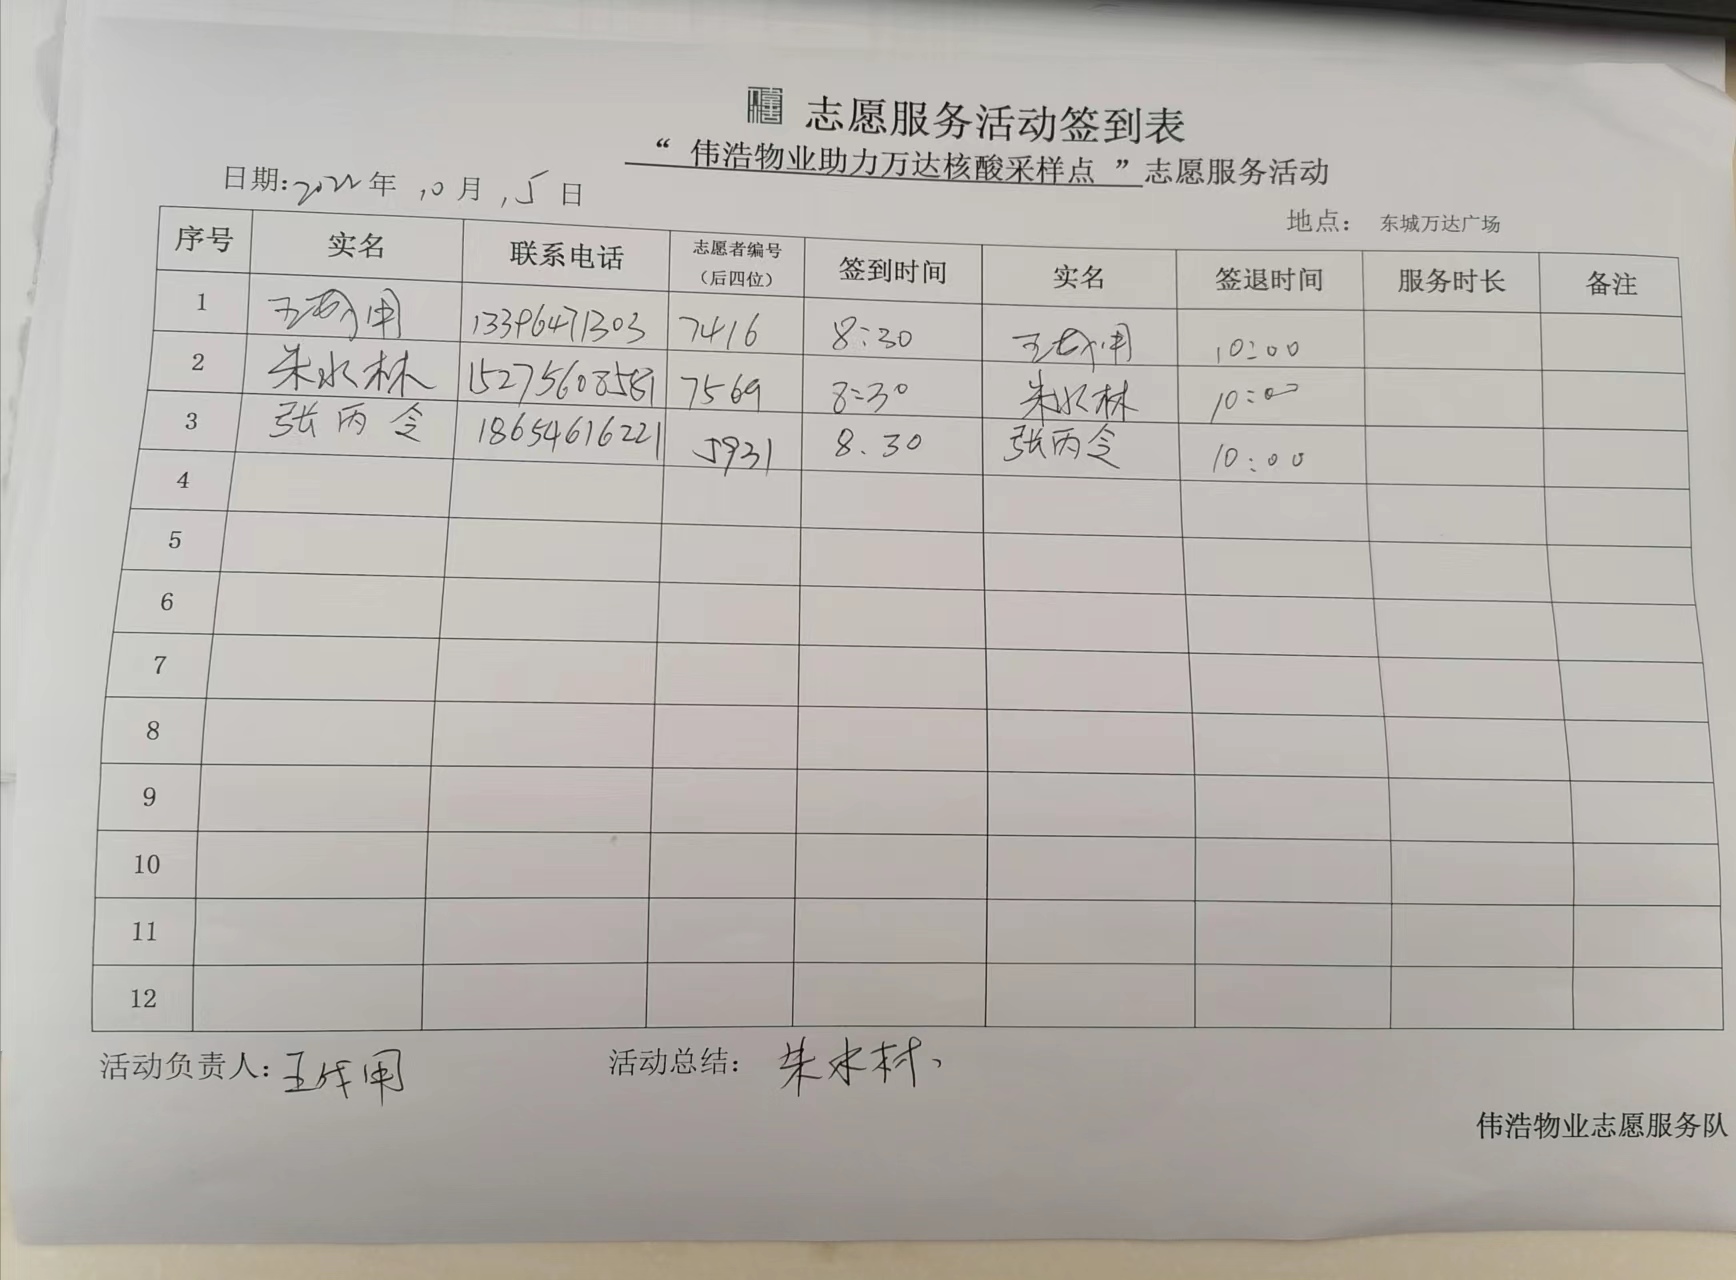 志愿服务活动签到表
“ 伟浩物业助力万达核酸采样点 ”志愿服务活动
日期:2022年 10月 15日
地点： 东城万达广场
序号 实名 联系电话 志愿者编号（后四位） 签到时间 实名 签退时间 服务时长 备注
1 13396471303 7416 8:30 10:00
2 朱水林 15275608581 7569 8:30 朱水林 10:00
3 张丙令 18654616221 5931 8.30 张丙令 10:00
4
5
6
7
8
9
10
11
12
活动负责人: 活动总结: 朱水村、
伟浩物业志愿服务队